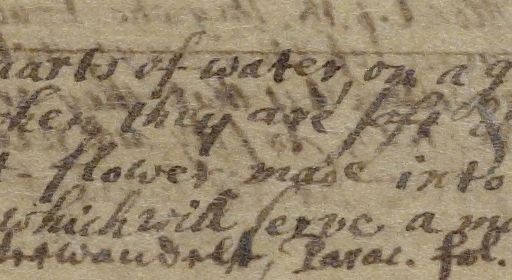 quarts of water, on a g
when they are soft
t-flower made into
which will serve a m
Parac. fol.